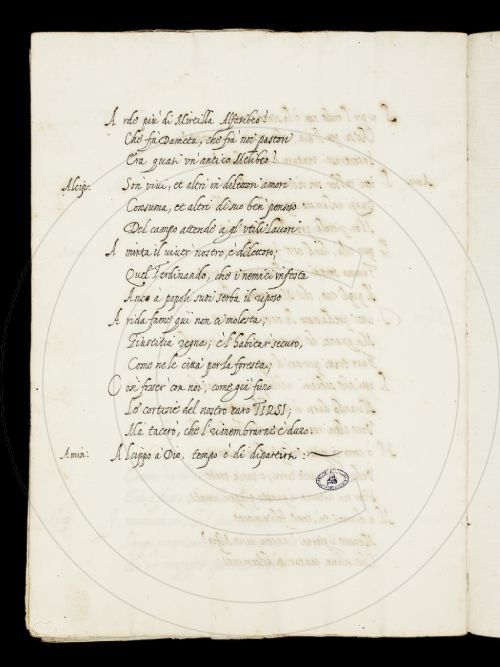 Arde più di Mirtilla Alfesibeo?
Che fà Dameta, che frà noi pastori
Era quasi un' antico Melibeo?
Alcip: Son vivi, et altri in dilettosi amori
Consuma, et altri di suo ben pensoso
Del campo attende à gl'utili lavori.
Aminta il viver nostro, è dilettoso;
Quel Ferdinando, che i nemici infesta
Anco à popoli suoi serba il riposo
Arida fame quì non ci molesta;
Giustitia regna; e l'habitar securo,
Come ne le città per la foresta;
Con fosser con noi, come già furo
Le cortesie del nostro caro TIRSI;
Ma tacerò, ch'l rimembrarne è duro.
Amin: Alcippo à Dio, tempo è di dipartirsi :~